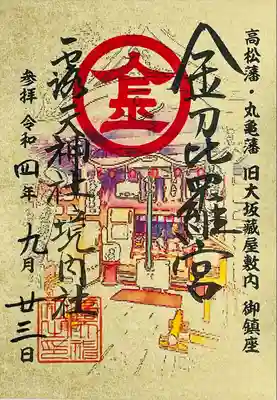 高松藩・丸亀藩 旧大坂蔵屋敷内 御鎮座
金刀比羅宮
金
露天神社境内社
参拝 令和四年 九月 廿三日